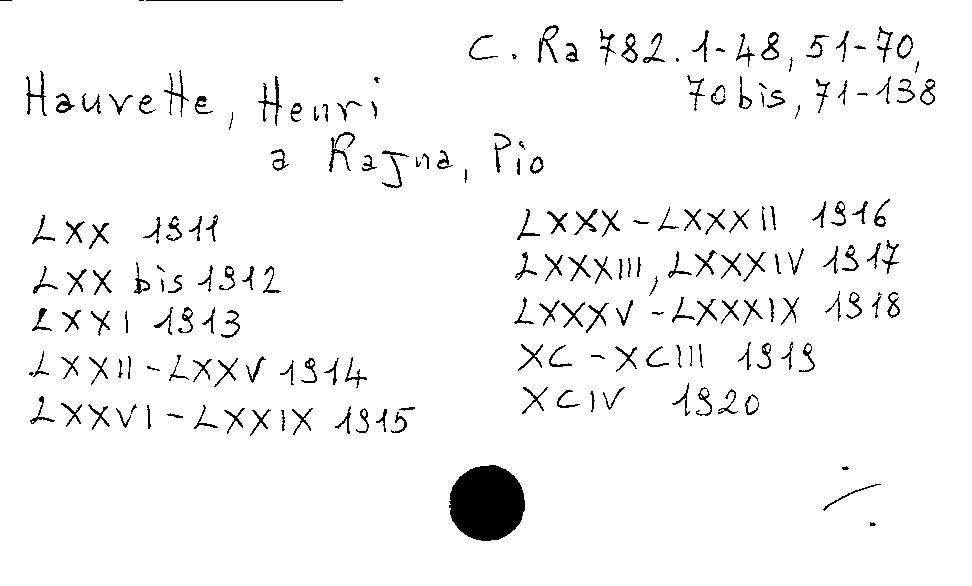 C. Ra 782. 1-48, 51-70,
70 bis, 71-138
Hauvette, Henri
a Rajna, Pio
LXX 1911
LXX bis 1912
LXXI 1913
LXXII - LXXV 1914
LXXVI - LXXIX 1915
LXXX - LXXXII 1916
LXXXIII, LXXXIV 1917
LXXXV - LXXXIX 1918
XC - XCIII 1919
XCIV 1920
./.